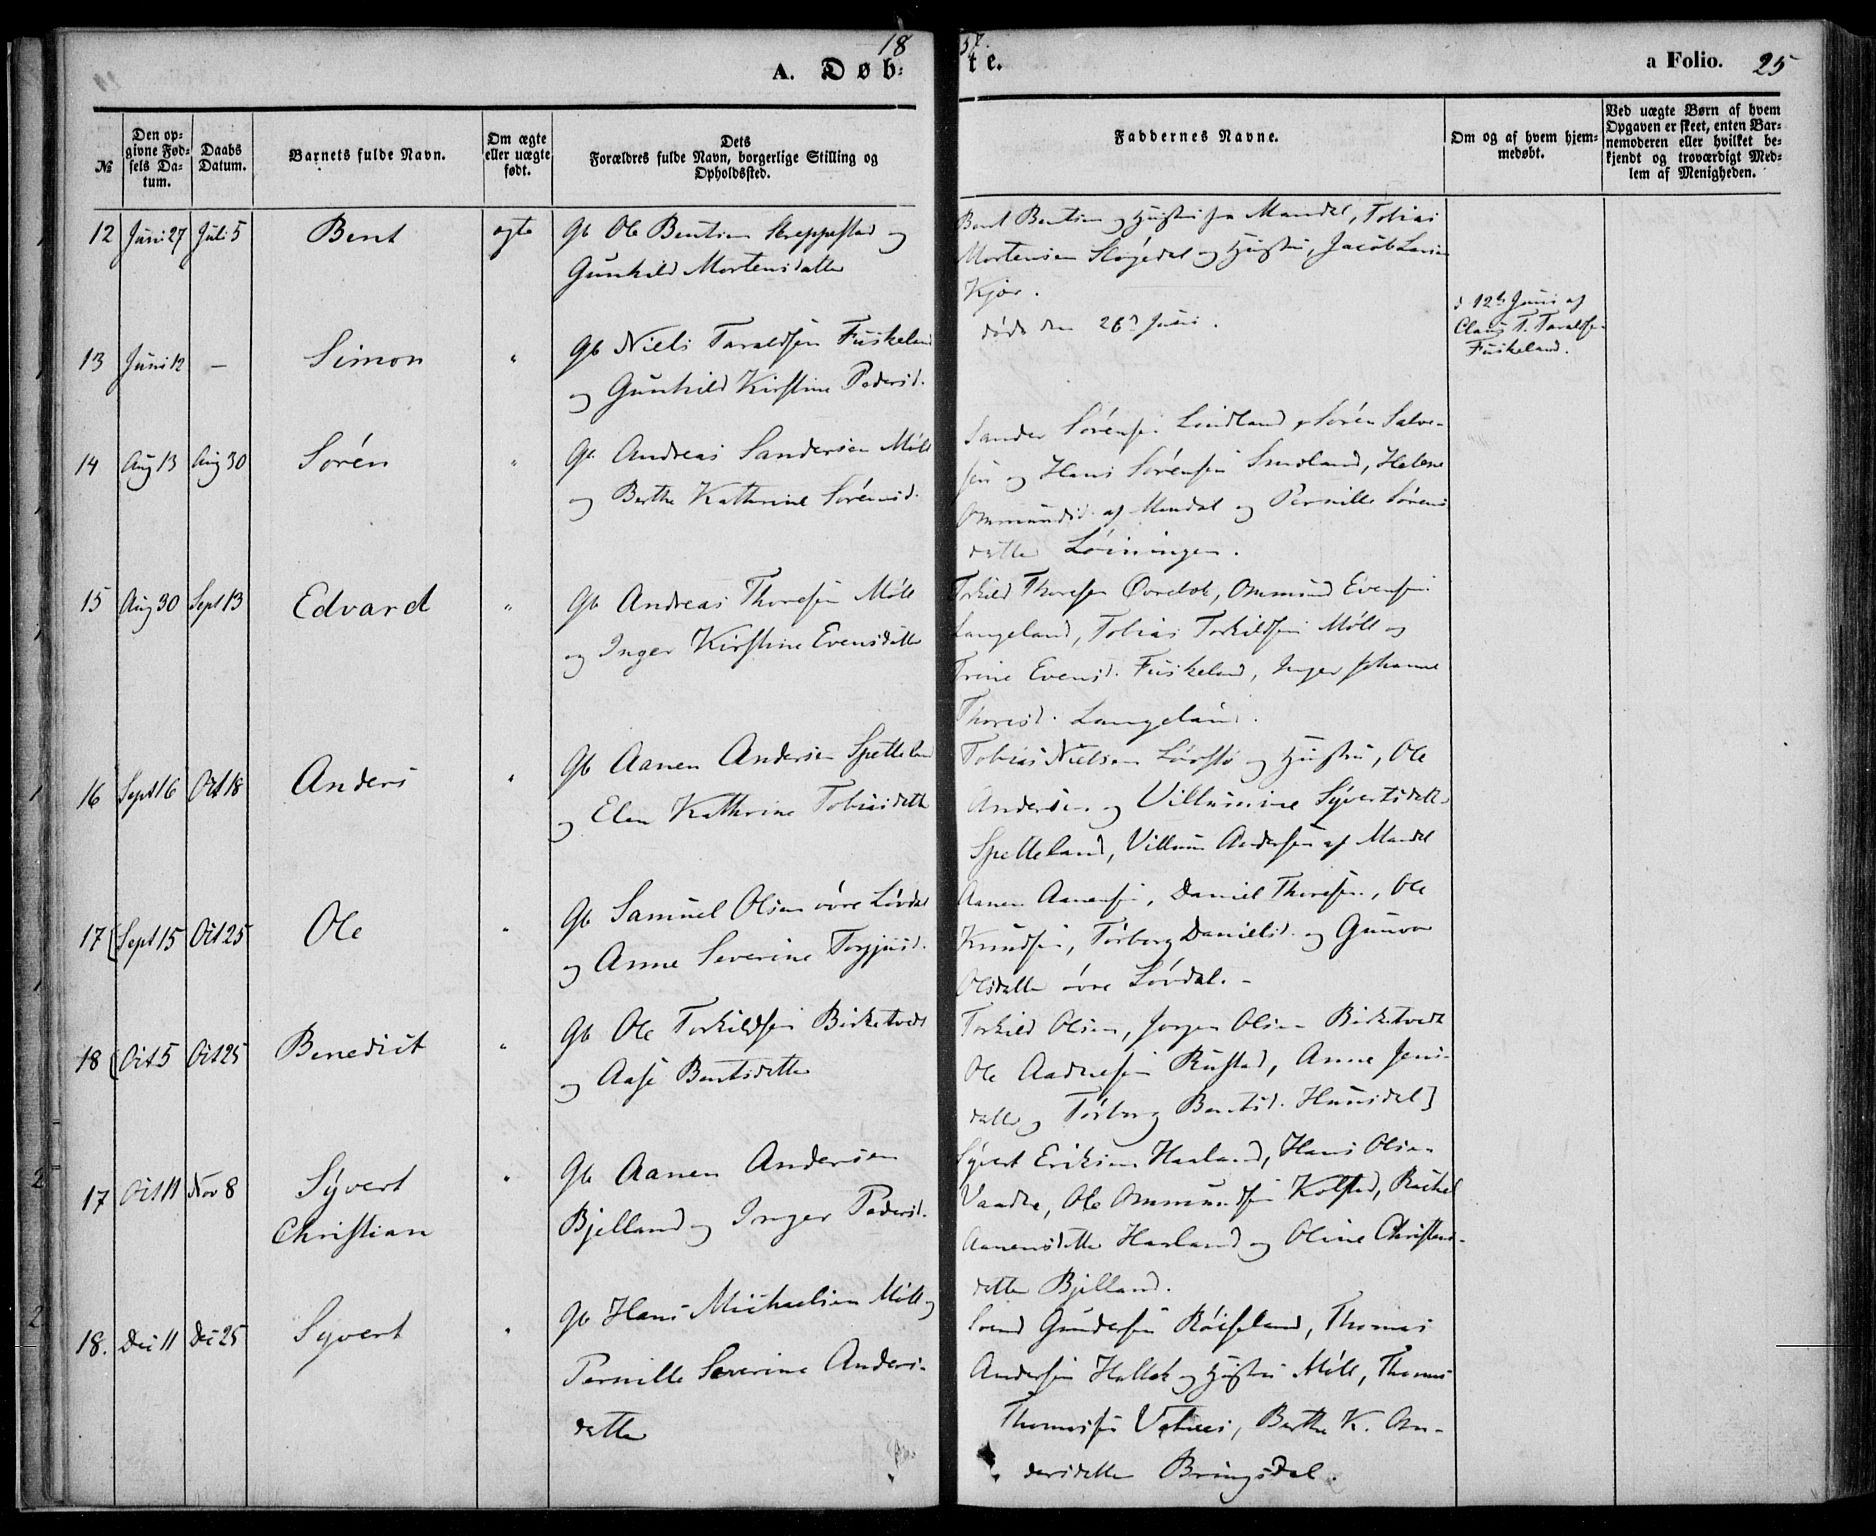 1857.
A. Døbte.
a Folio. 25
№
Den opgivne Fødsels Datum.
Daabs Datum.
Barnets fulde Navn.
Om ægte eller uægte født.
Dets Forældres fulde Navn, borgerlige Stilling og Opholdssted.
Faddernes Navne.
Om og af hvem hjemmedøbt.
Ved uægte Børn af hvem Opgaven er skeet, enten Barnemoderen eller hvilket bekjendt og troværdigt Medlem af Menigheden.
12 Juni 27 Juli 5 Bent ægte Gb Ole Bentsen Skeppestad og
Gunhild Mortensdatter
Bent Bentsen og Hustru fra Mandal, Tobias
Mortensen Skøjedal og Hustru, Jacob Larsen
Kjær.
13 Juni 12 — Simon " Gb Niels Taraldsen Fuskeland
og Gunhild Kirstine Pedersd.
døde den 26d Juni.
d 12te Juni af
Claus T. Taraldsen
Fuskeland.
14 Aug 13 Aug 30 Søren " Gb Andreas Sandersen Møll
og Berthe Kathrine Sørensd.
Sander Sørensen Lindland, Søren Salve-
sen og Hans Sørensen Lindland, Helene
Ommundsd. af Mandal og Pernille Sørens
datter Løiningen.
15 Aug 30 Sept 13 Edvard " Gb Andreas Thoresen Møll
og Inger Kirstine Evensdatter
Torkild Thoresen Øvrebø, Ommund Evensen
Langeland, Tobias Torkildsen Møll og
Trine Evensd. Fuskeland, Inger Johanne
Thoresd. Langeland.
16 Sept 16 Oct 18 Anders " Gb Aanen Andersen Spetteland
og Elen Kathrine Tobiasdatter
Tobias Nielsen og Hustru, Ole
Andersen og Villumine Syvertsdatter
Spetteland, Villum Andersen af Mandal
17 Sept 15 Oct 25 Ole " Gb Samuel Olsen øvre Løvdal
og Anne Severine Torjusd.
Aanen Aanensen, Daniel Thoresen, Ole
Knudsen, Torborg Danielsd. og Gunvor
Olsdatter øvre Løvdal. -
18 Oct 5 Oct 25 Benedict " Gb Ole Torkildsen Birketvedt
og Aase Bentsdatter
Torkild Olsen, Jørgen Olsen Birketvedt
Ole Aadnesen Rustad, Anne Jens-
datter, Torborg Bentsd. Huusdal]
17 Oct 11 Nov 8 Syvert
Christian " Gb Aanen Andersen
Bjelland og Inger Pedersd.
Syvert Eriksen Haaland, Hans Olsen
Vaadre, Ole Ommundsen Kolstad, Rachel
Aanensdatter Haaland og Oline Christens-
datter Bjelland.
18. Dec 11 Dec 25 Syvert " Gb Hans Michaelsen Møll og
Pernille Severine Anders-
datter
Svend Gundersen Røiseland, Thomas
Andersen Holbæk og Hustru Møll, Thomas
Thomassen Valnes, Berthe K. An-
dersdatter Bringsdal.